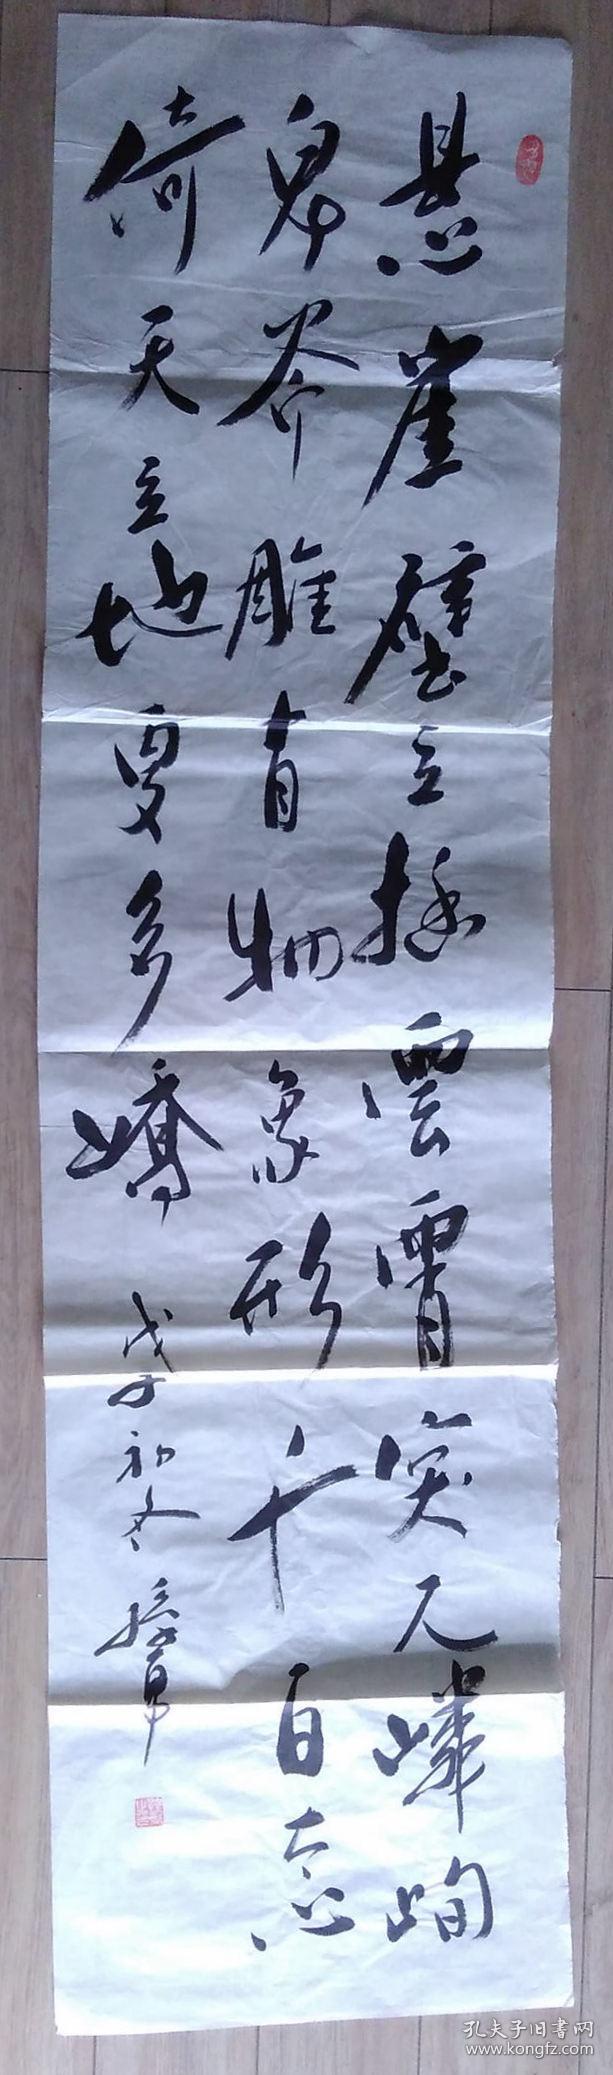 悬崖壁立插雲霄突兀嶙峋
鬼斧雕肖物象形千百态
倚天立地更多嬌
戊子初冬
孔夫子旧書网
www.kongfz.com